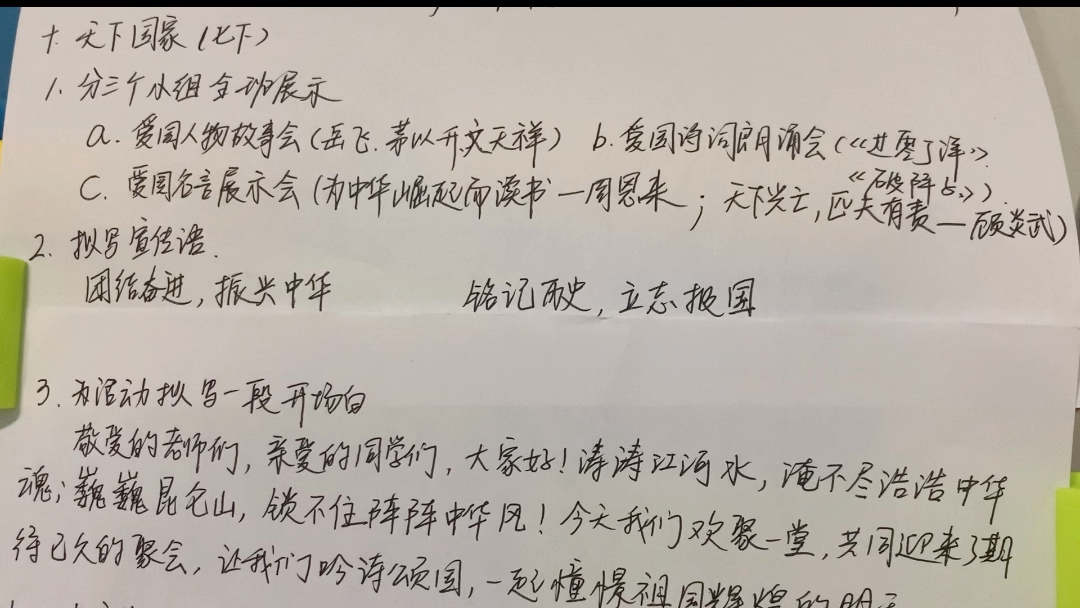 十. 天下国家(七下)
1. 分三个小组全班展示
a. 爱国人物故事会(岳飞. 茅以升文天祥) b. 爱国诗词朗诵会(《过零丁洋》
《破阵子》).
C. 爱国名言展示会(为中华崛起而读书—周恩来; 天下兴亡,匹夫有责—顾炎武)
2. 拟写宣传语.
团结奋进,振兴中华 铭记历史,立志报国
3. 为活动拟写一段开场白
敬爱的老师们,亲爱的同学们,大家好!涛涛江河水,淹不尽浩浩中华
魂;巍巍昆仑山,锁不住阵阵中华风!今天我们欢聚一堂,共同迎来了期
待已久的聚会,让我们吟诗颂国,一起憧憬祖国辉煌的明天